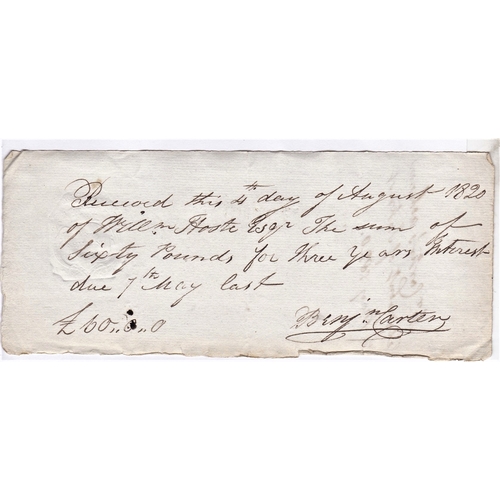 Received this 4th day of August 1820
of Willm Hoste Esqr The sum of
Sixty Pounds for three Years Interest
due 7th May last
£60,,0,,0 Benjn Carter